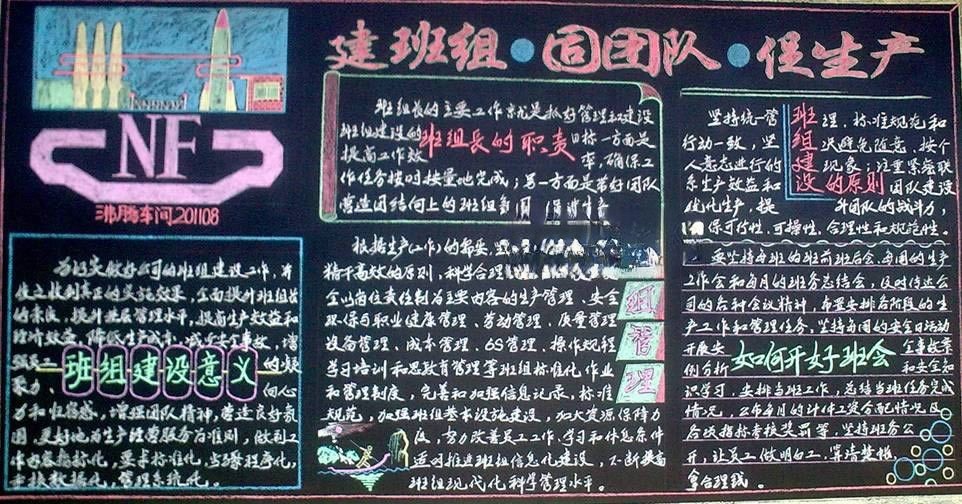 建班组·固团队·促生产
NF
沸腾车间201108
为切实做好公司的班组建设工作,并
使之收到真正的实施效果,全面提升班组长
的素质,提升基层管理水平,提高生产效益和
经济效益,降低生产成本,减少安全事故,增
强员工
班组建设意义
的凝
聚力、
向心
力和归属感,增强团队精神,营造良好氛
围,更好地为生产经营服务为准则,做到工
作内容指标化,要求标准化,
考核数据化,管理系统化。
班组长的主要工作就是抓好管理和建设
班组建设的
班组长的职责
目标一方面是
提高工作效
率,确保工
作任务按时按量地完成;另一方面是带好团队
营造团结向上的班组氛围
根据生产(工作)的需要,
精干高效的原则,科学合理
全以岗位责任制为主要内容的生产管理、安全
环保与职业健康管理、劳动管理、质量管理
设备管理、成本管理、6S管理、操作规程
学习培训和思政教育管理等班组标准化作业
和管理制度,完善和加强信息记录,标准
规范,加强班组基本设施建设,加大资源保障力
度,努力改善员工工作、学习和休息条件
适时推进班组信息化建设,不断提高
班组现代化科学管理水平。
组管理
坚持统一管
班组建设的原则
理、标准规范和
行动一致,坚
决避免随意、按个
人意志进行的
现象;注重紧密联
系生产效益和
团队建设
优化生产,提
升团队的战斗力,
保可行性,可操性,合理性和规范性。
要坚持每班的班前班后会,每周的生产
工作会和每月的班务总结会,及时传达公
司的各种会议精神,布置安排各阶段的生
产工作和管理任务,坚持每周的安全日活动
开展安
如何开好班会
全事故案
例分析
和安全知
识学习,安排当班工作,总结当班任务完成
情况,公布每月的计件工资分配情况及
各项指标考核奖罚等,坚持班务公
开,让员工做明白工,
拿合理钱。